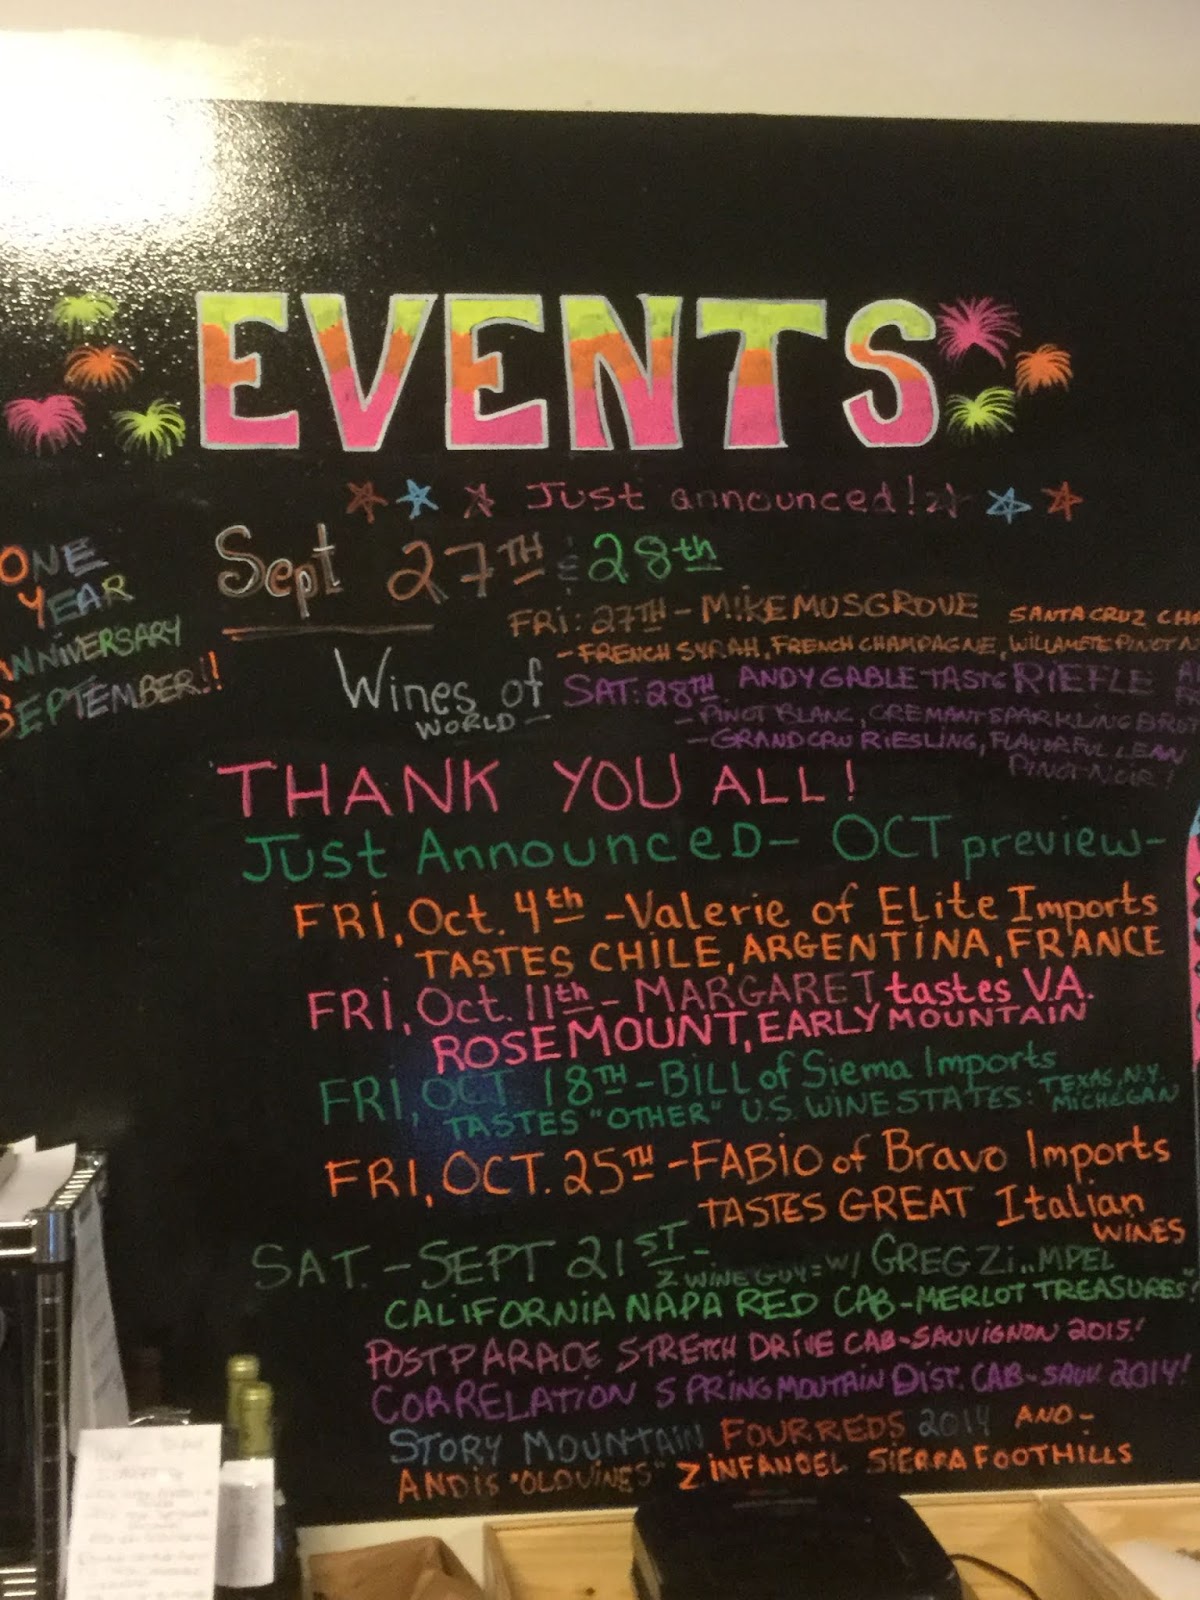 EVENTS
Just announced!
ONE
YEAR
ANNIVERSARY
SEPTEMBER!!
Sept 27TH & 28th
FRI: 27TH - MIKE MUSGROVE SANTA CRUZ CH
- FRENCH SYRAH, FRENCH CHAMPAGNE, WILLAMETE PINOT N
Wines of
WORLD -
SAT: 28TH ANDY GABLE TASTE RIEFLE
- PINOT BLANC, CREMANT SPARKLING BRUT
- GRAND CRU RIESLING, FLAVORFUL LEAN
PINOT NOIR!
THANK YOU ALL!
Just Announced - OCT preview -
FRI, Oct. 4th - Valerie of Elite Imports
TASTES CHILE, ARGENTINA, FRANCE
FRI, Oct. 11th - MARGARET tastes V.A.
ROSEMOUNT, EARLY MOUNTAIN
FRI, OCT. 18TH - BILL of Siema Imports
TASTES "OTHER" U.S. WINE STATES: TEXAS, N.Y.
MICHEGAN
FRI, OCT. 25TH - FABIO of Bravo Imports
TASTES GREAT Italian
WINES
SAT. - SEPT 21ST -
Z WINE GUY = W/ GREG Zi..MPEL
CALIFORNIA NAPA RED CAB - MERLOT TREASURES"!
POSTPARADE STRETCH DRIVE CAB - SAUVIGNON 2015!
CORRELATION SPRING MOUTAIN DIST. CAB - SAUV. 2014!
STORY MOUNTAIN FOUR REDS 2014 AND -
ANDIS "OLD VINES" ZINFANDEL SIERRA FOOTHILLS